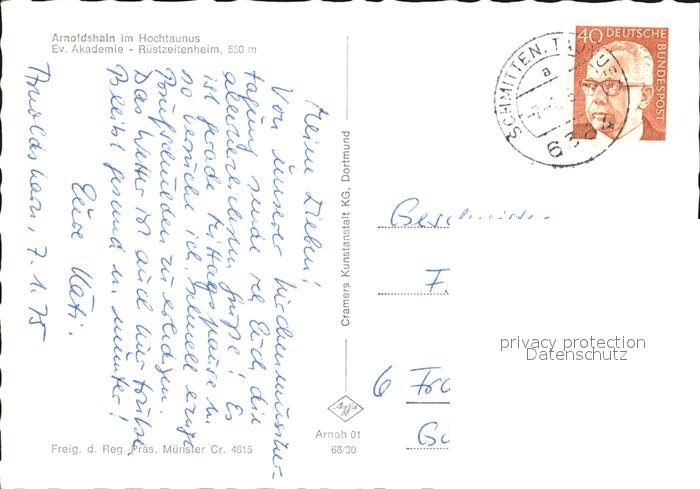 Arnoldshain im Hochtaunus
Ev. Akademie - Rüstzeitenheim, 550 m
Arnoldshain, 7.1.75
Meine Lieben!
Von unserer Kirchenmusiker-
tagung sende ich Euch die
allerherzlichsten Grüße! Es
ist gerade Mittagspause u.
so versuche ich, schnell einige
Postschulden zu erledigen.
Das Wetter ist auch hier trübe.
Bleibt gesund u. munter!
Eure Kati.
Cramers Kunstanstalt KG, Dortmund
Agfa
Arnoh 01
68/30
Freig. d. Reg.-Präs. Münster Cr. 4615
SCHMITTEN, TAUNUS
a
40 DEUTSCHE
BUNDESPOST
Geschwister
F.
6 Fra
privacy protection
Datenschutz